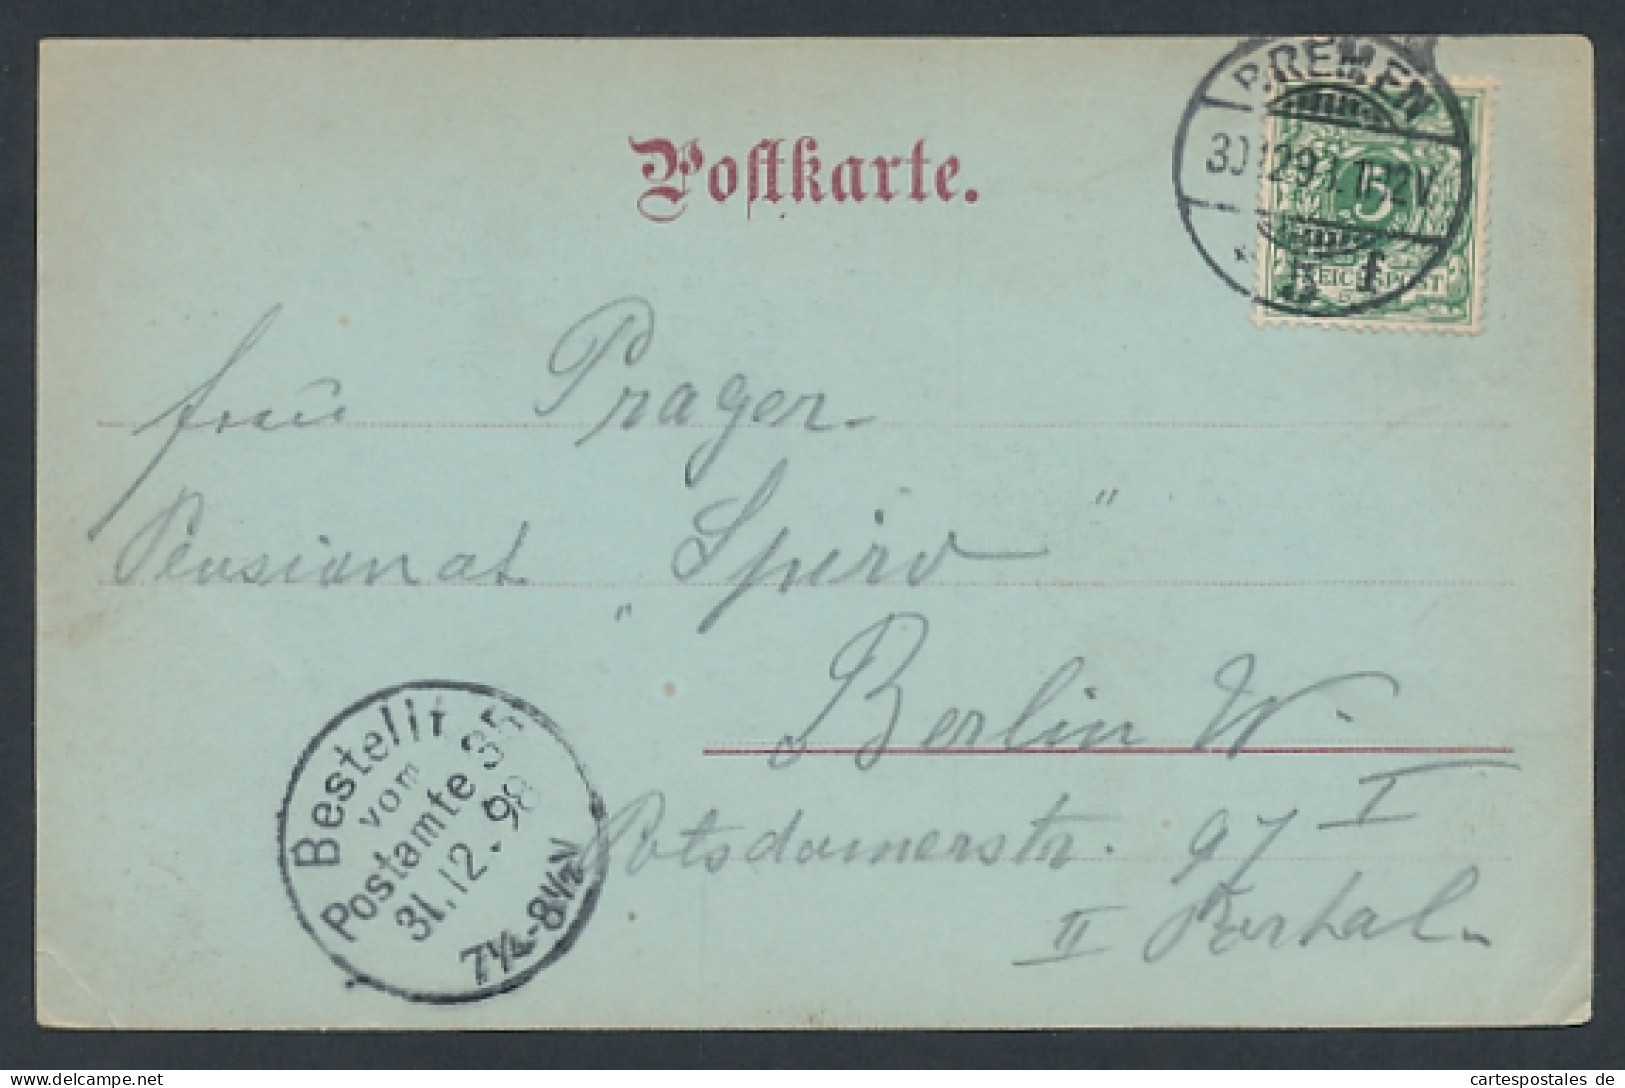 Postkarte.
BREMEN
30.12.98. 11-12V.
* f
5
REICHSPOST
Frau Prager
Pensionat „Spiro"
Berlin W.
Potsdamerstr. 97 I
II Portal
Bestellt
vom
Postamte 35
31.12.98
7¼-8½V
cartespostales de